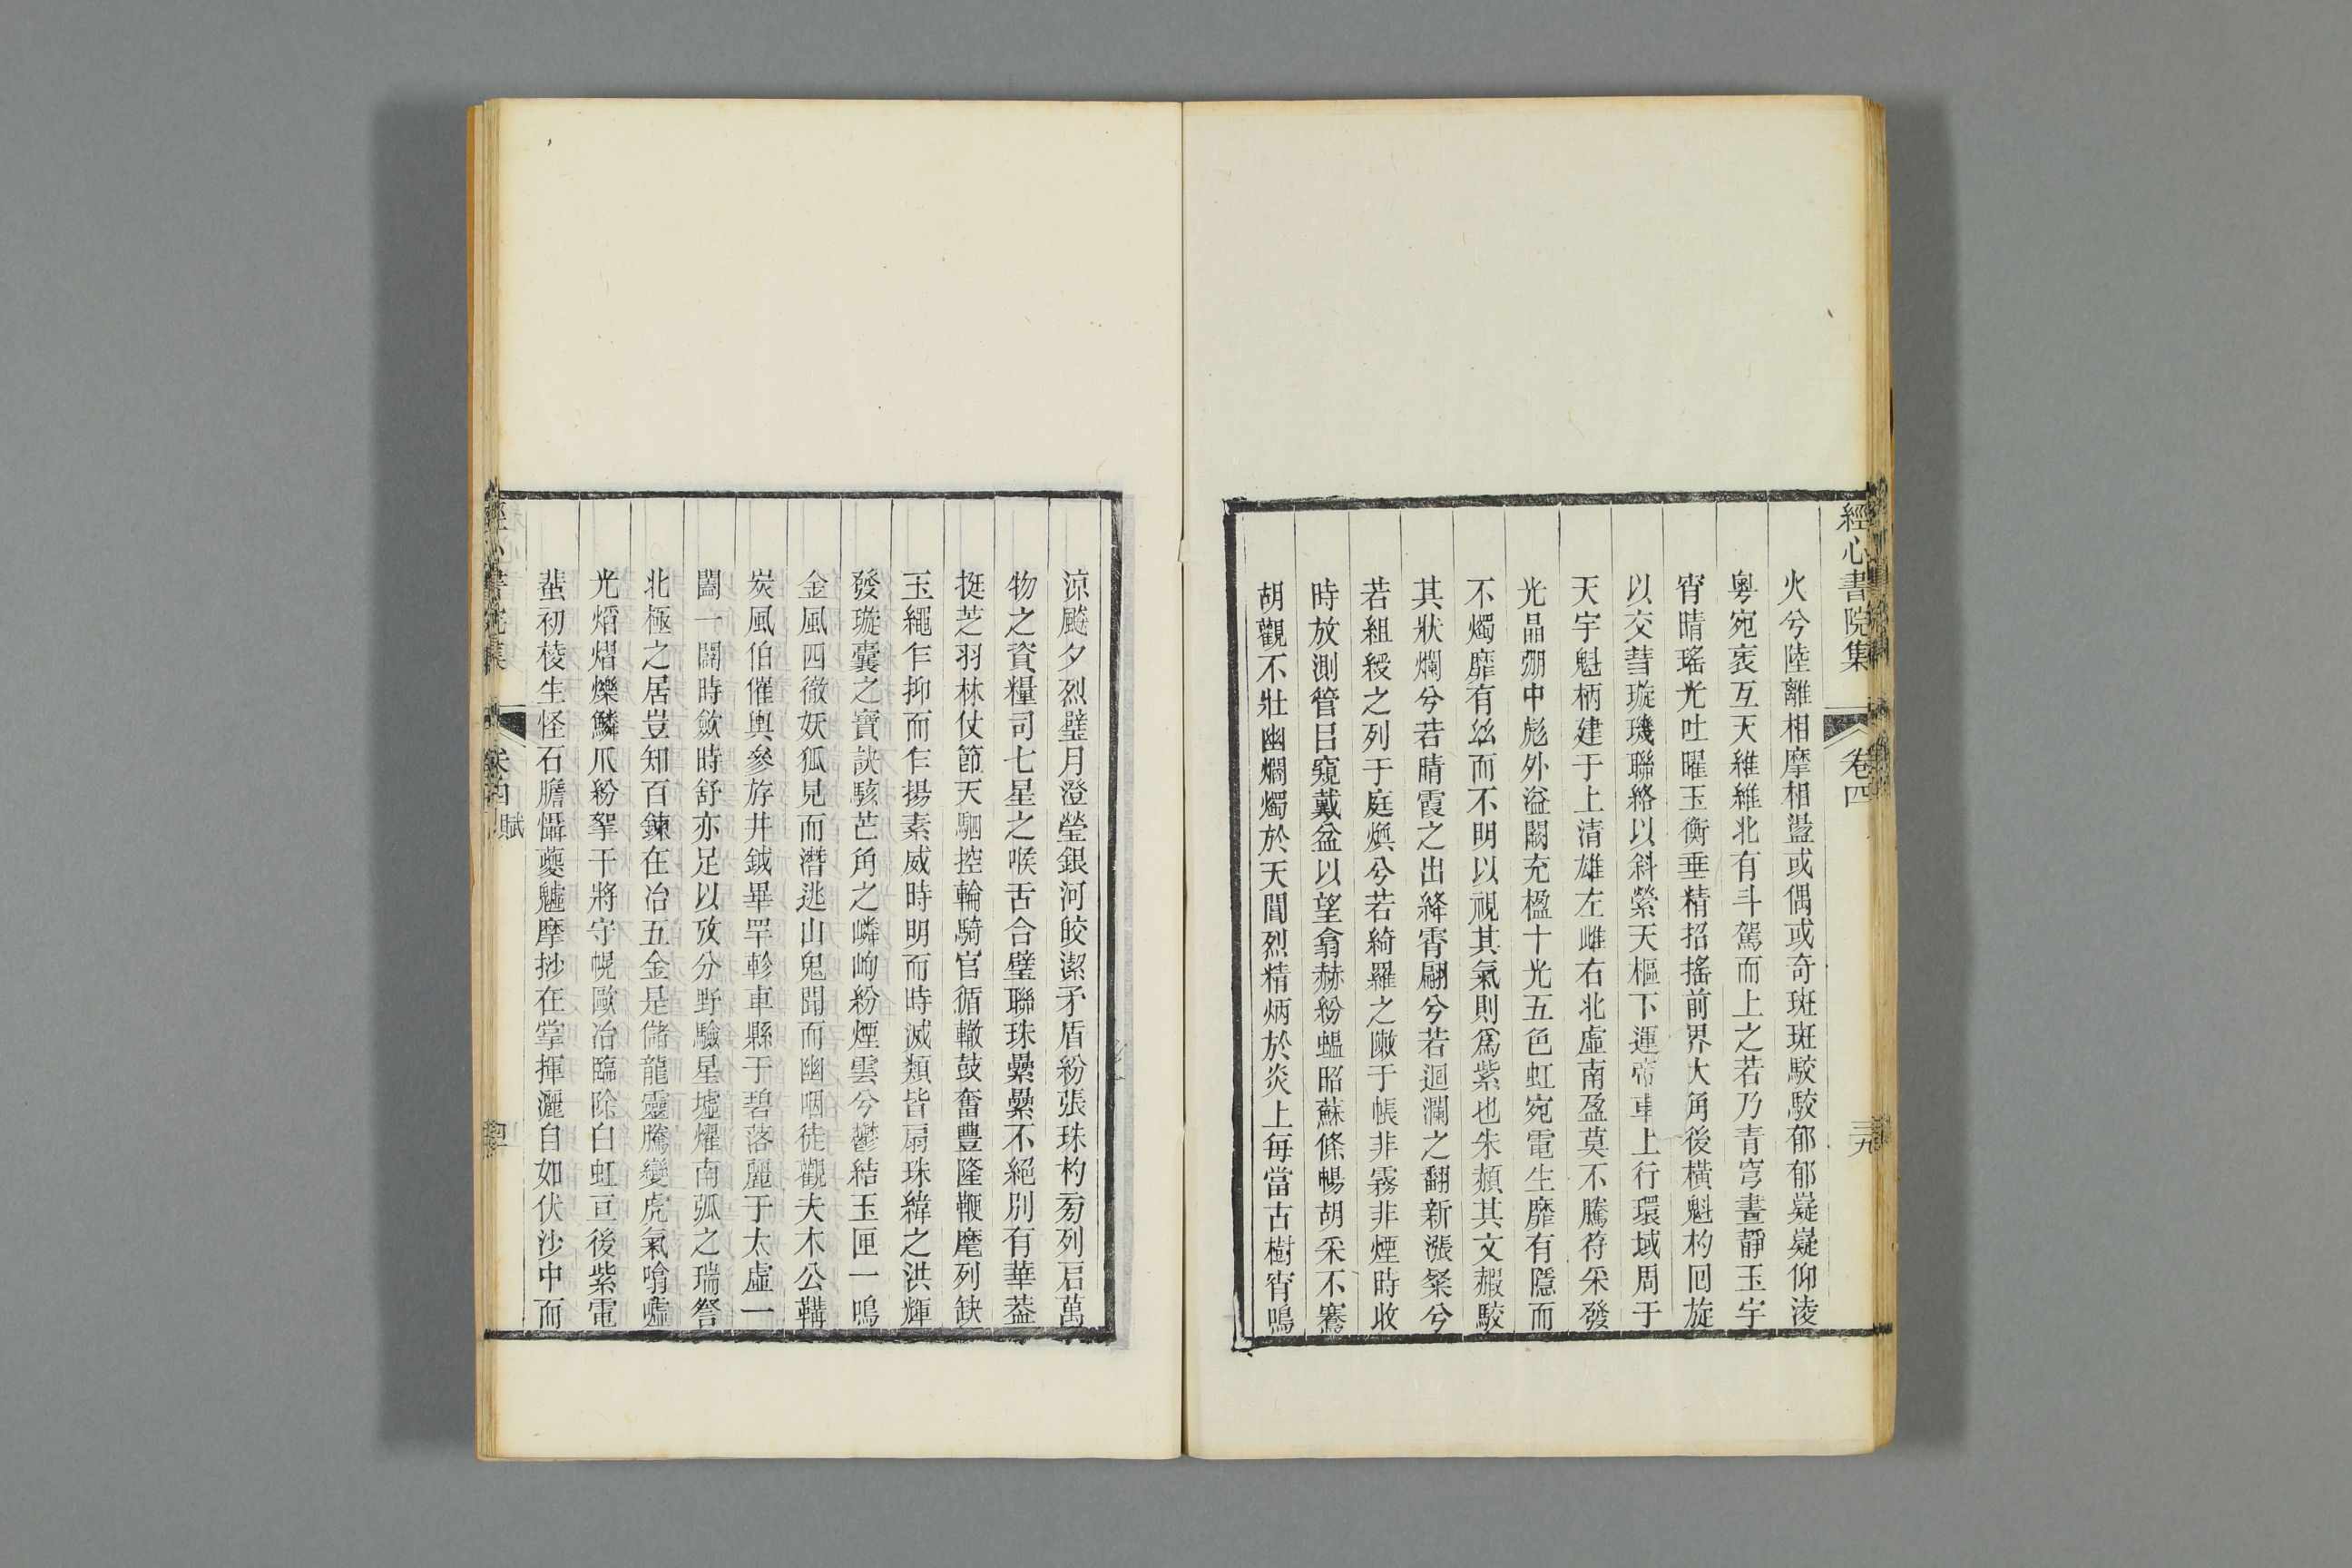 經心書院集 卷四 三九
火兮陸離相摩相盪或偶或奇斑斑駮駮郁郁嶷嶷仰淩
粵宛袤互天維維北有斗駕而上之若乃青穹晝靜玉宇
宵晴瑤光吐曜玉衡垂精招搖前界大角後橫魁杓回旋
以交彗璇璣聯絡以斜縈天樞下運帝車上行環域周于
天宇魁柄建于上清雄左雌右北虛南盈莫不騰符采發
光晶弸中彪外溢闞充楹十光五色虹宛電生靡有隱而
不燭靡有玆而不明以視其氣則爲紫也朱頳其文赮駮
其狀爛兮若晴霞之出絳霄翩兮若迴瀾之翻新漲粲兮
若組綬之列于庭煥兮若綺羅之敶于帳非霧非煙時收
時放測管目窺戴盆以望翕赫紛蝹昭蘇條暢胡采不騫
胡觀不壯幽爓燭於天閶烈精炳於炎上每當古樹宵鳴
涼飈夕烈璧月澄瑩銀河皎潔矛盾紛張珠杓旁列启萬
物之資糧司七星之喉舌合璧聯珠纍纍不絕別有華葢
挺芝羽林仗節天駟控輪騎官循轍鼓奮豐隆鞭麾列缺
玉繩乍抑而乍揚素威時明而時滅類皆扇珠緯之洪輝
發璇囊之寶訣駭芒角之嶙峋紛煙雲兮鬱結玉匣一鳴
金風四徹妖狐見而潛逃山鬼聞而幽咽徒觀夫木公鞲
炭風伯催輿參斿井鉞畢罕軫車縣于碧落麗于太虛一
闔一闢時斂時舒亦足以攷分野驗星墟燿南弧之瑞詧
北極之居豈知百鍊在冶五金是儲龍靈騰變虎氣噏噓
光熖熠爍鱗爪紛拏干將守幌歐冶臨除白虹亘後紫電
蜚初棱生怪石膽懾夔魖摩抄在掌揮灑自如伏沙中而
賦